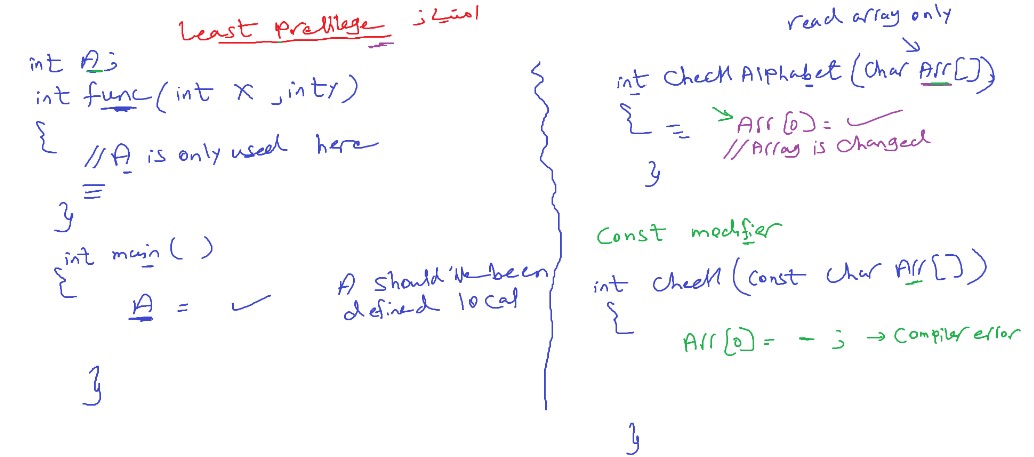 Least Previlege امتیاز
int A;
int func(int x, int y)
{
//A is only used here
}
int main()
{
A = ✓
A should've been
defined local
}
read array only
int CheckAlphabet(char Arr[])
{
Arr[0]= ✓
//Array is changed
}
Const modifier
int check(const char Arr[])
{
Arr[0]= - ; → Compiler error
}